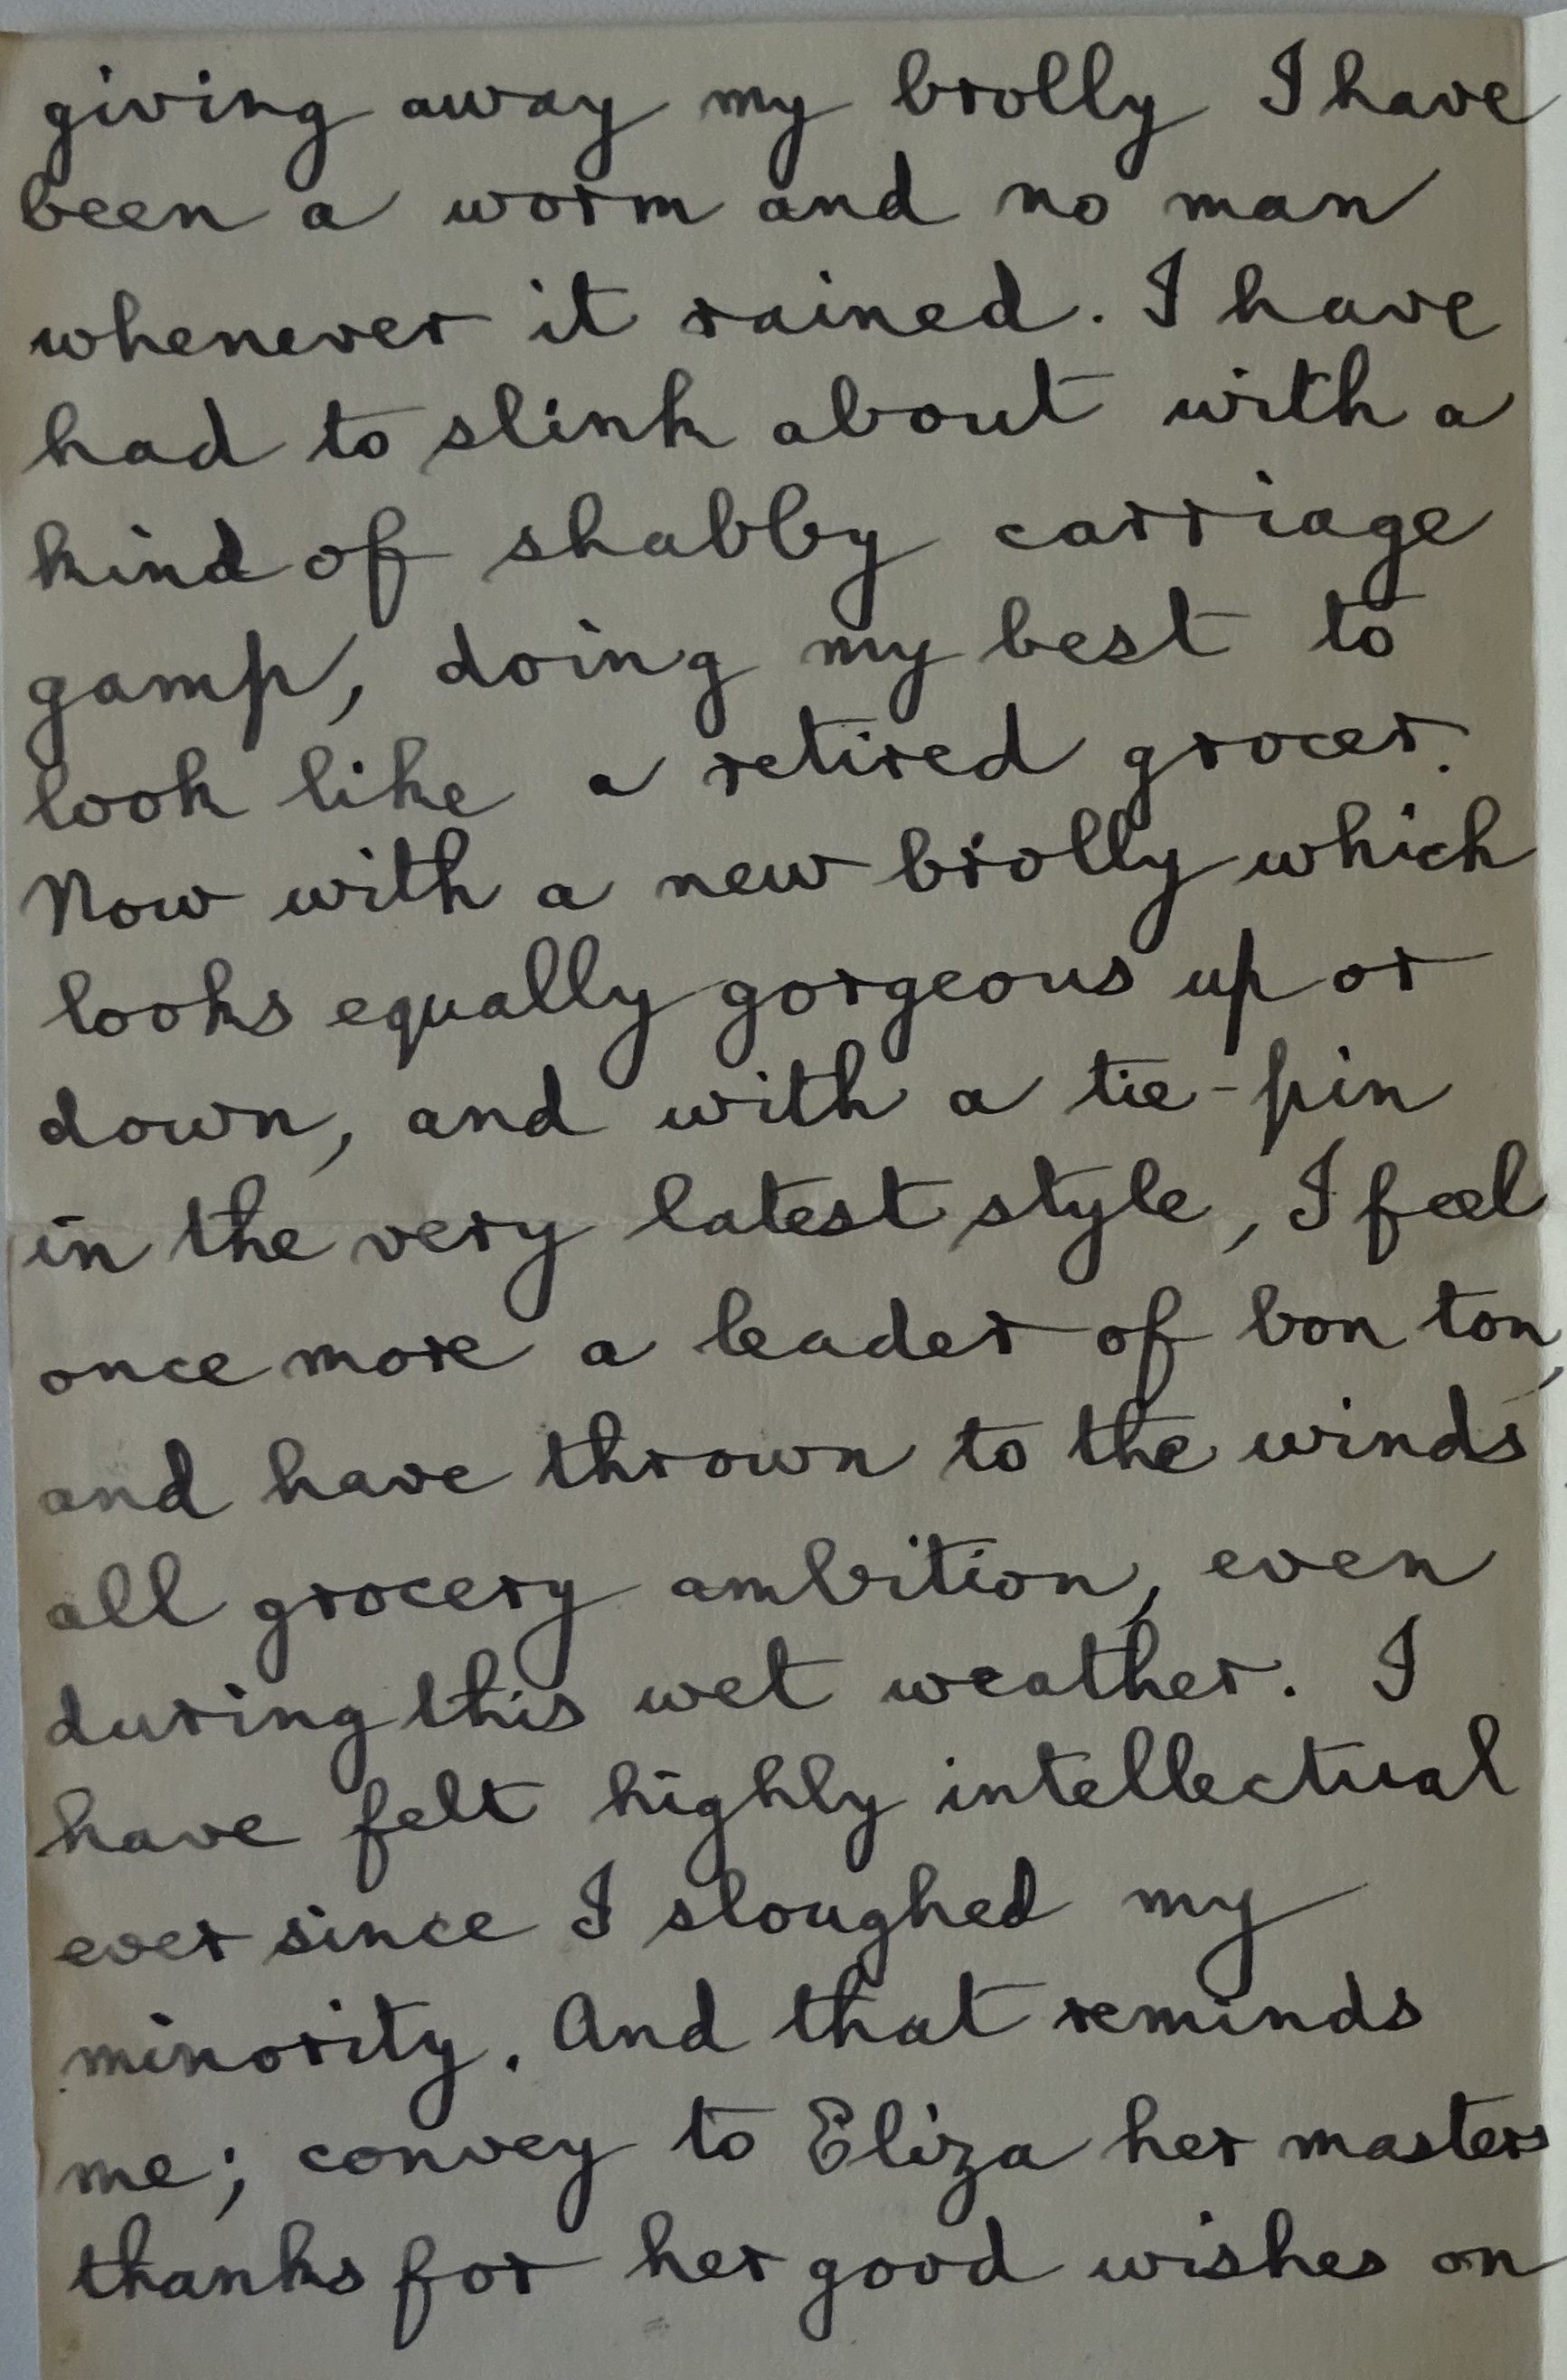 giving away my brolly I have
been a worm and no man
whenever it rained. I have
had to slink about with a
kind of shabby carriage
gamp, doing my best to
look like a retired grocer.
Now with a new brolly which
looks equally gorgeous up or
down, and with a tie-pin
in the very latest style, I feel
once more a leader of bon ton,
and have thrown to the winds
all grocery ambition, even
during this wet weather. I
have felt highly intellectual
ever since I sloughed my
minority. And that reminds
me; convey to Eliza her masters
thanks for her good wishes on